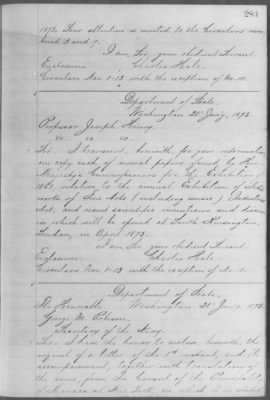 283
1873. Your attention is invited to the Circulars num-
bered 2 and 7.
I am, Sir, your obedient Servant.
Enclosures: Charles Hale.
Circulars Nos 1-13 with the exception of No. 10.
Department of State,
Washington 21 Jany, 1873.
Professor Joseph Henry.
Sir: I transmit, herewith, for your information
one copy each of several papers issued by Her
Majesty's Commissioners for the Exhibition of
1851, relative to the annual Exhibition of select
works of Fine Arts (including music) Industrial
Art, and recent scientific inventions and discov-
eries which will be opened at South Kensington,
London, in April 1873.
I am Sir your obedient Servant.
Enclosures: Charles Hale.
Circulars Nos 1-13 with the exception of No. 10.
Department of State,
The Honorable Washington 21 Jany, 1873.
George M. Robeson,
Secretary of the Navy.
Sir: I have the honor to enclose herewith the
original of a letter of the instant, and its
accompaniment, together with translations of
the same, from the Consul of the
at New York, in which it is stated